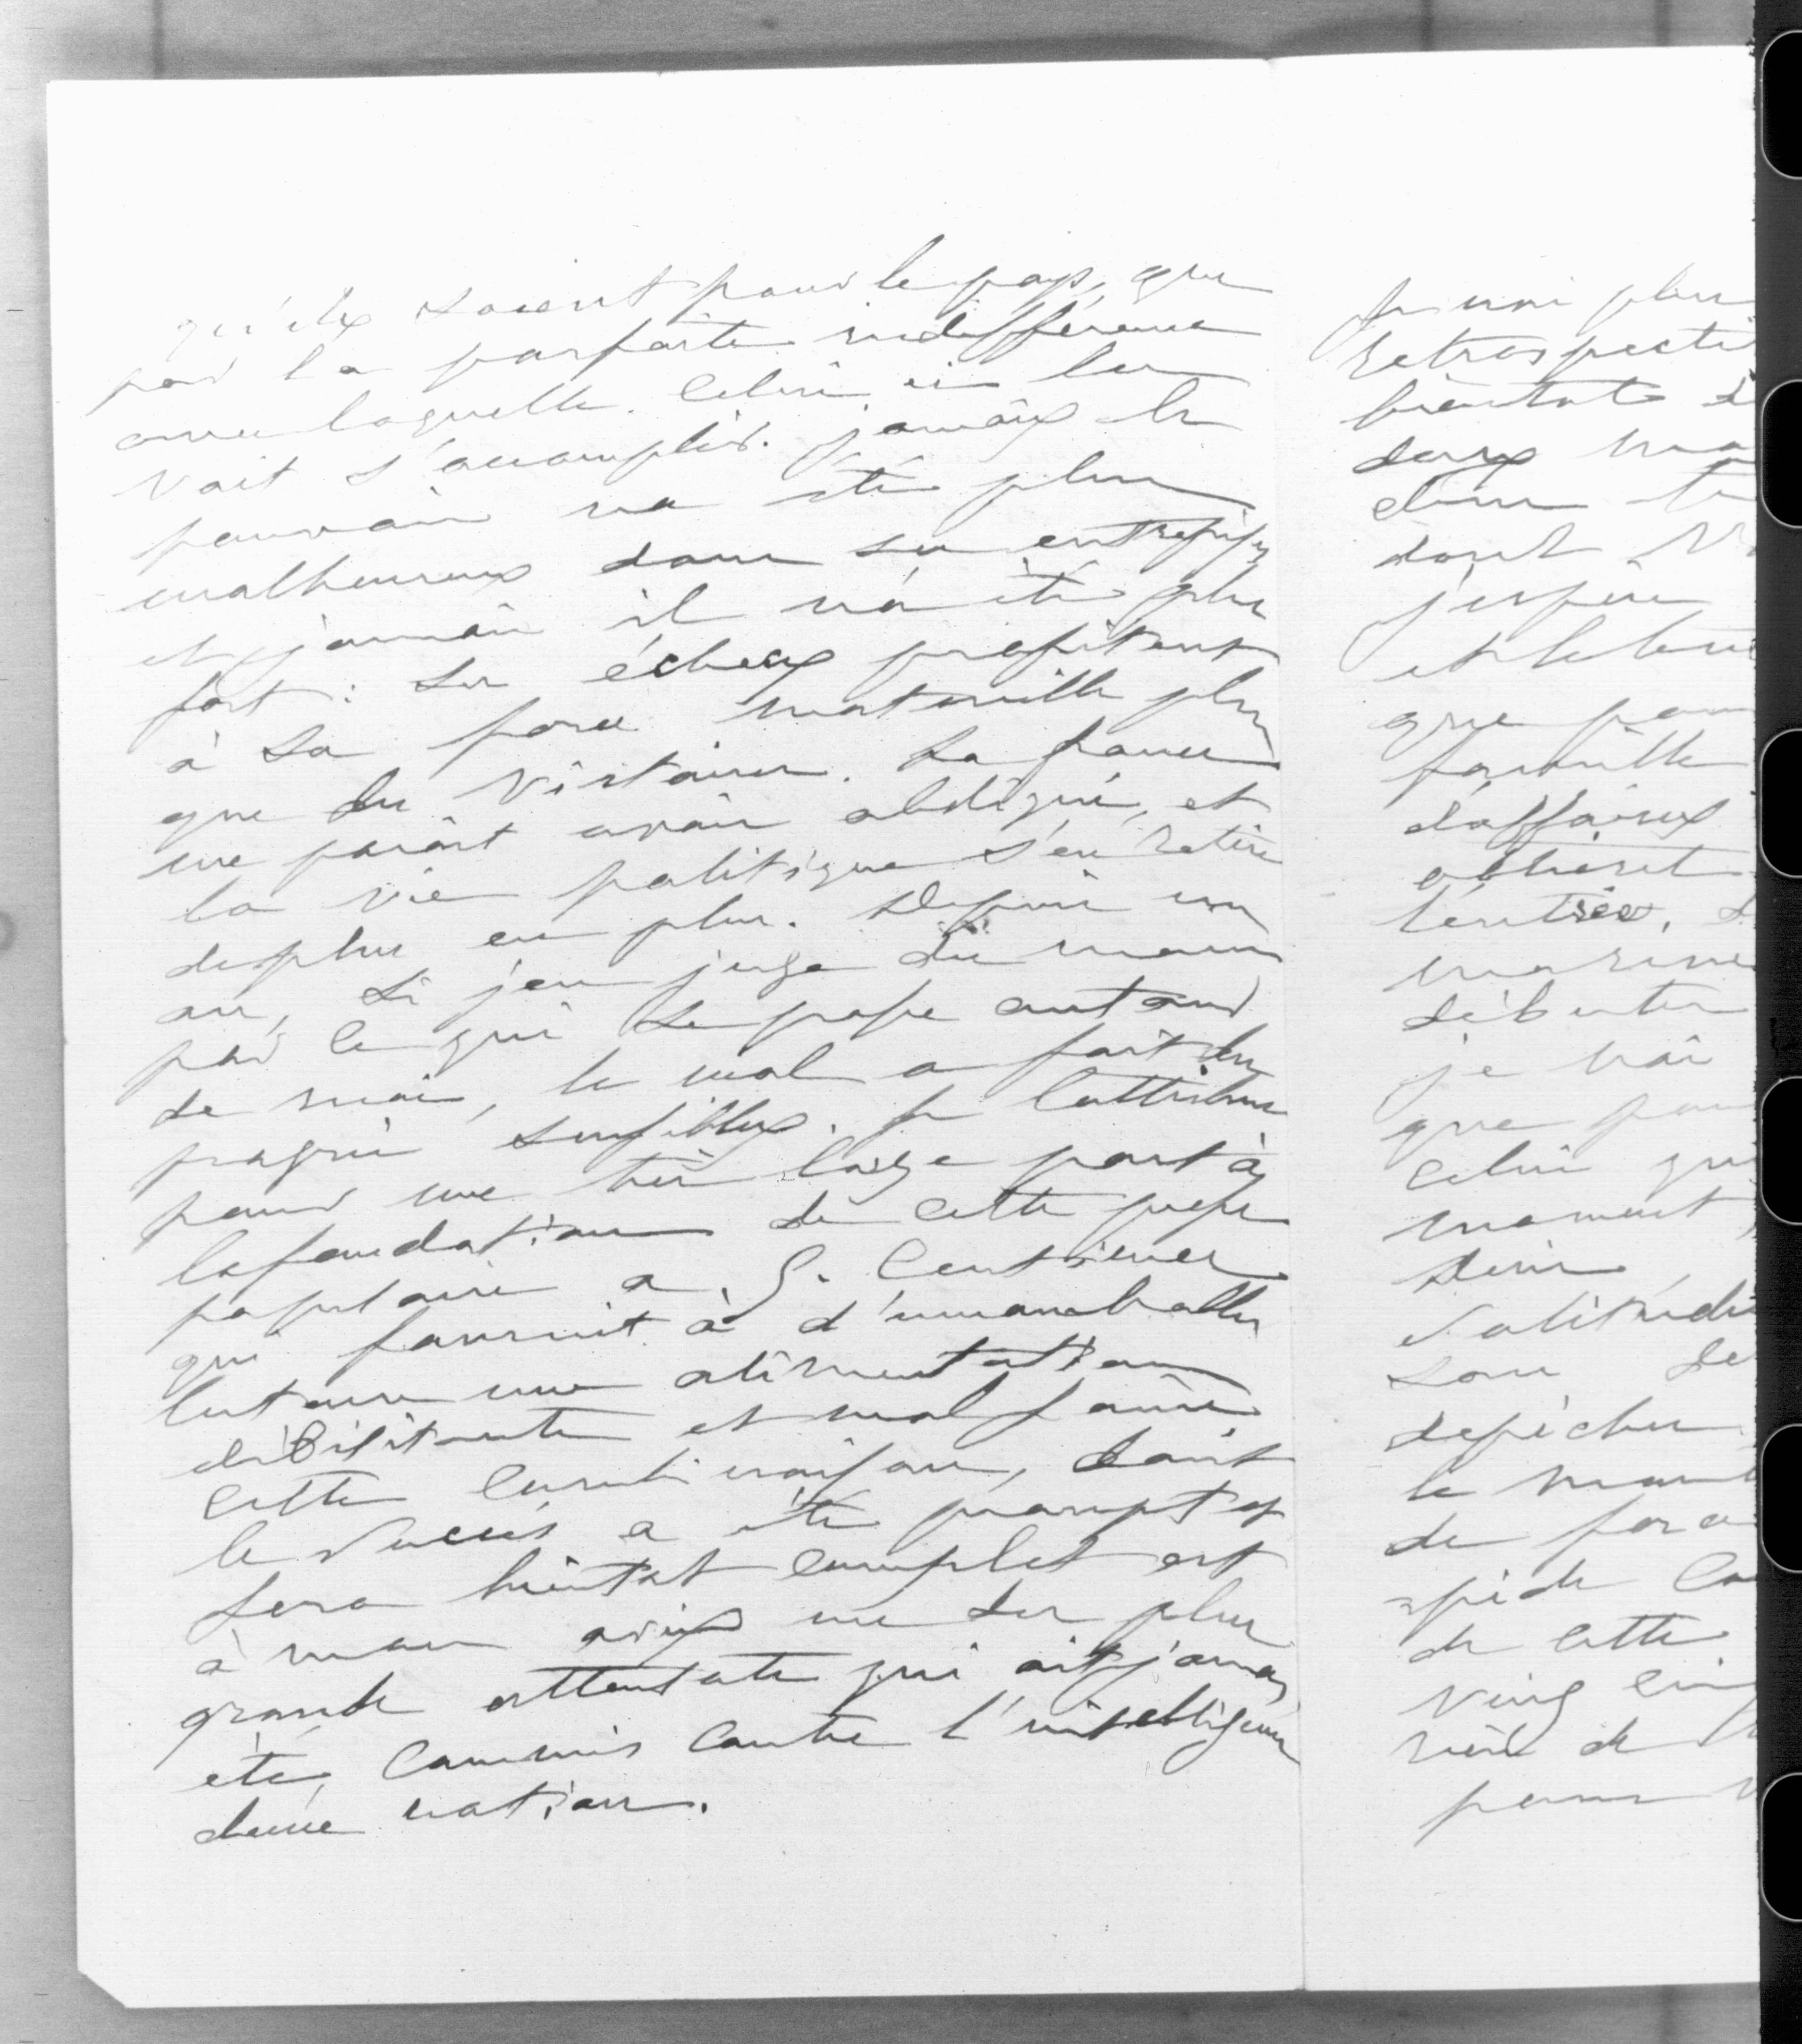 qu'ils soient pour le pays, que
par la parfaite indifférence
avec laquelle celui ci les
voit s'accomplir. jamais le
pouvoir n'a été plus
malheureux dans ses entreprises
et jamais il n'a été plus
fort : ses échecs profitent
à sa force matérielle plus
que des victoires. La france
me parait avoir abdiqué, et
la vie politique s'en retire
de plus en plus. Depuis un
an, si j'en juge du moins
par ce qui se passe autour
de moi, le mal a fait des
progrès sensibles. je l'attribue
pour une très large part à
la fondation de cette presse
populaire a 5. centimes
qui fournit à d'innombrables
lecteurs une alimentation
débilitante et malsaine
Cette combinaison, dont
le succès a été prompt et
sera bientôt complet est
à mon avis un des plus
grands attentats qui ait jamais
été commis contre l'intelligence
d'une nation.
je n'ai plus
retrospecti
bientôt d
deux mo
dont
j'espère
et le
que pour
famille
d'affaires
l'entrée,
marine
débuter
je n'ai
que pour
celui qu
moment,
sollicitude
sous
depêches
le
de
de cette
cin
rière de
pour